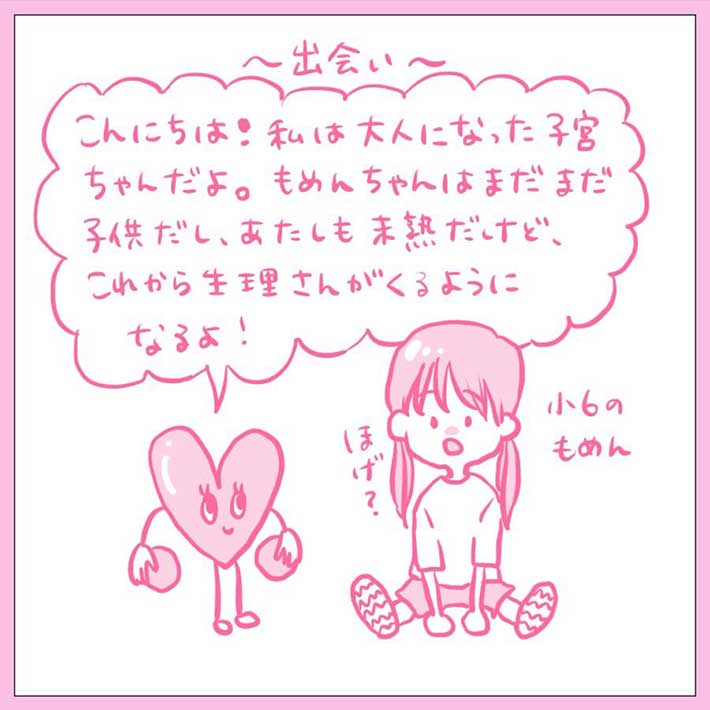 〜出会い〜
こんにちは！私は大人になった子宮
ちゃんだよ。もめんちゃんはまだまだ
子供だし、あたしも未熟だけど、
これから生理さんがくるように
なるよ！
ほげ？
小6の
もめん